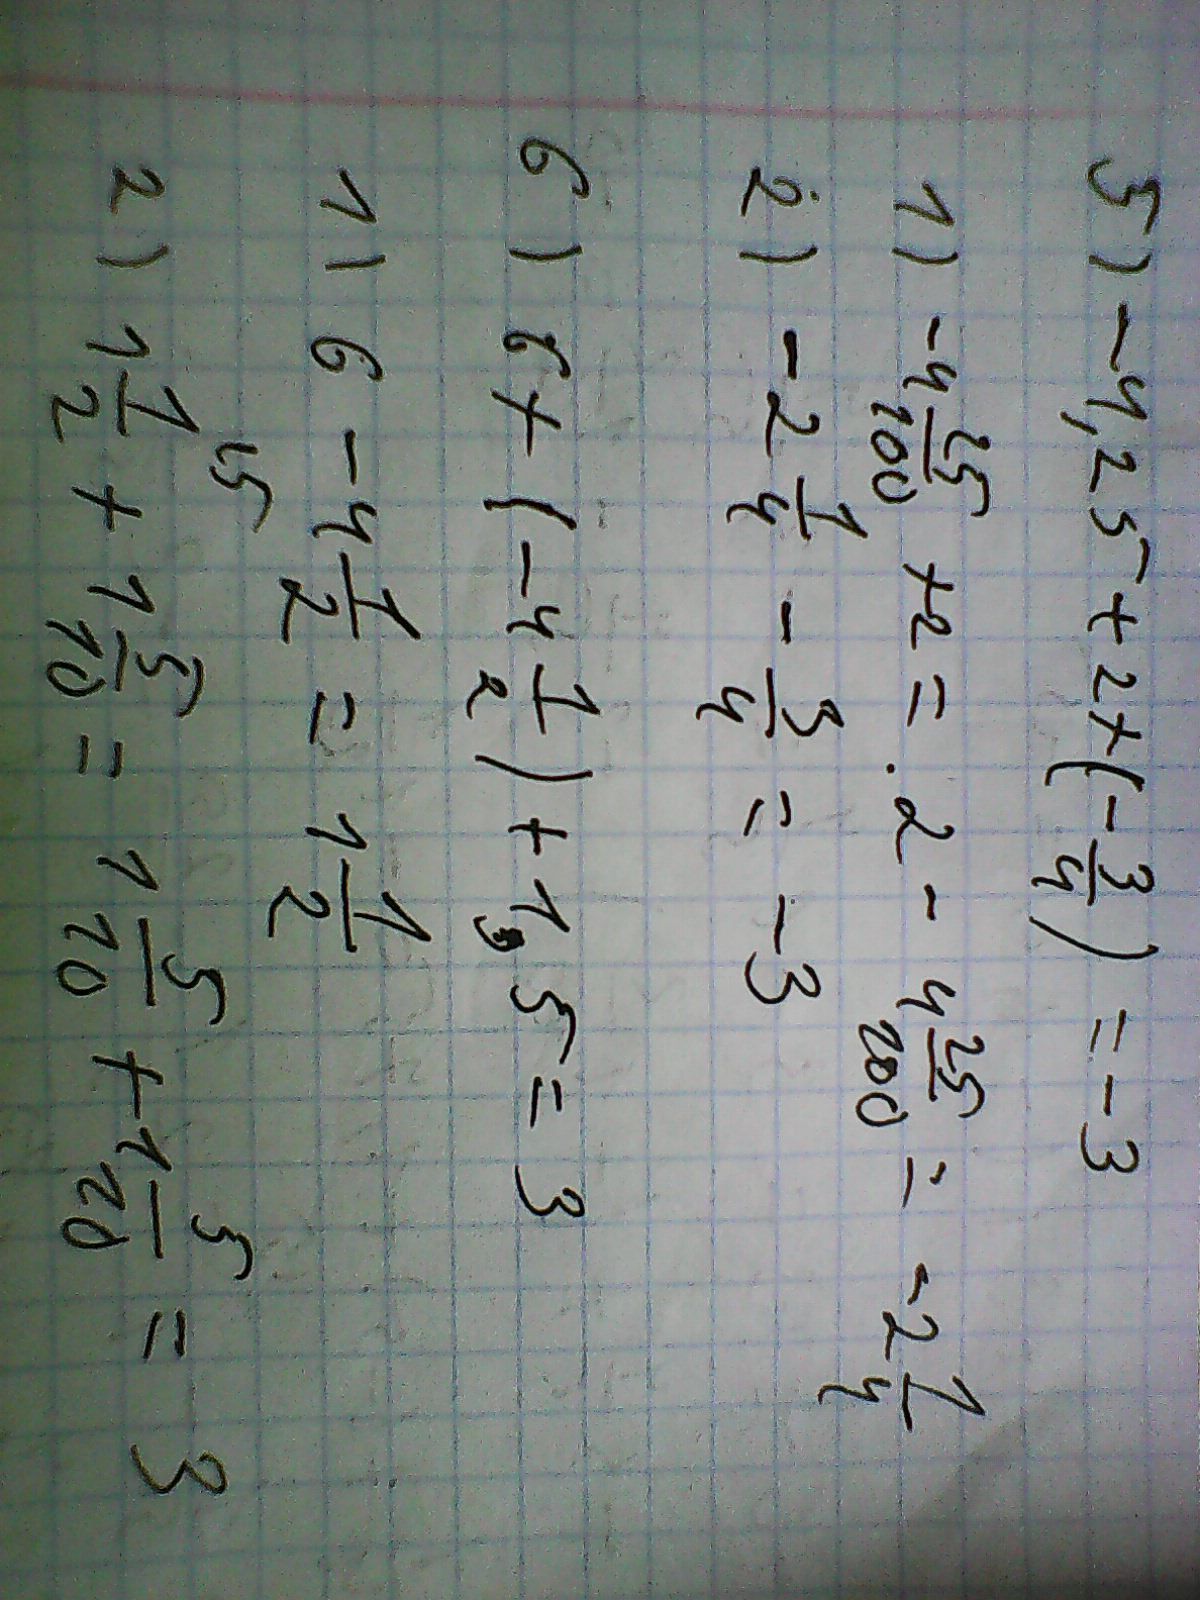 5) -4,25 + 2 + (-3/4) = -3
1) -4 25/100 + 2 = 2 - 4 25/100 = -2 1/4
2) -2 1/4 - 3/4 = -3
6) 6 + (-4 1/2) + 1,5 = 3
1) 6 - 4 1/2 = 1 1/2
2) 1 1/2 + 1 5/10 = 1 5/10 + 1 5/10 = 3